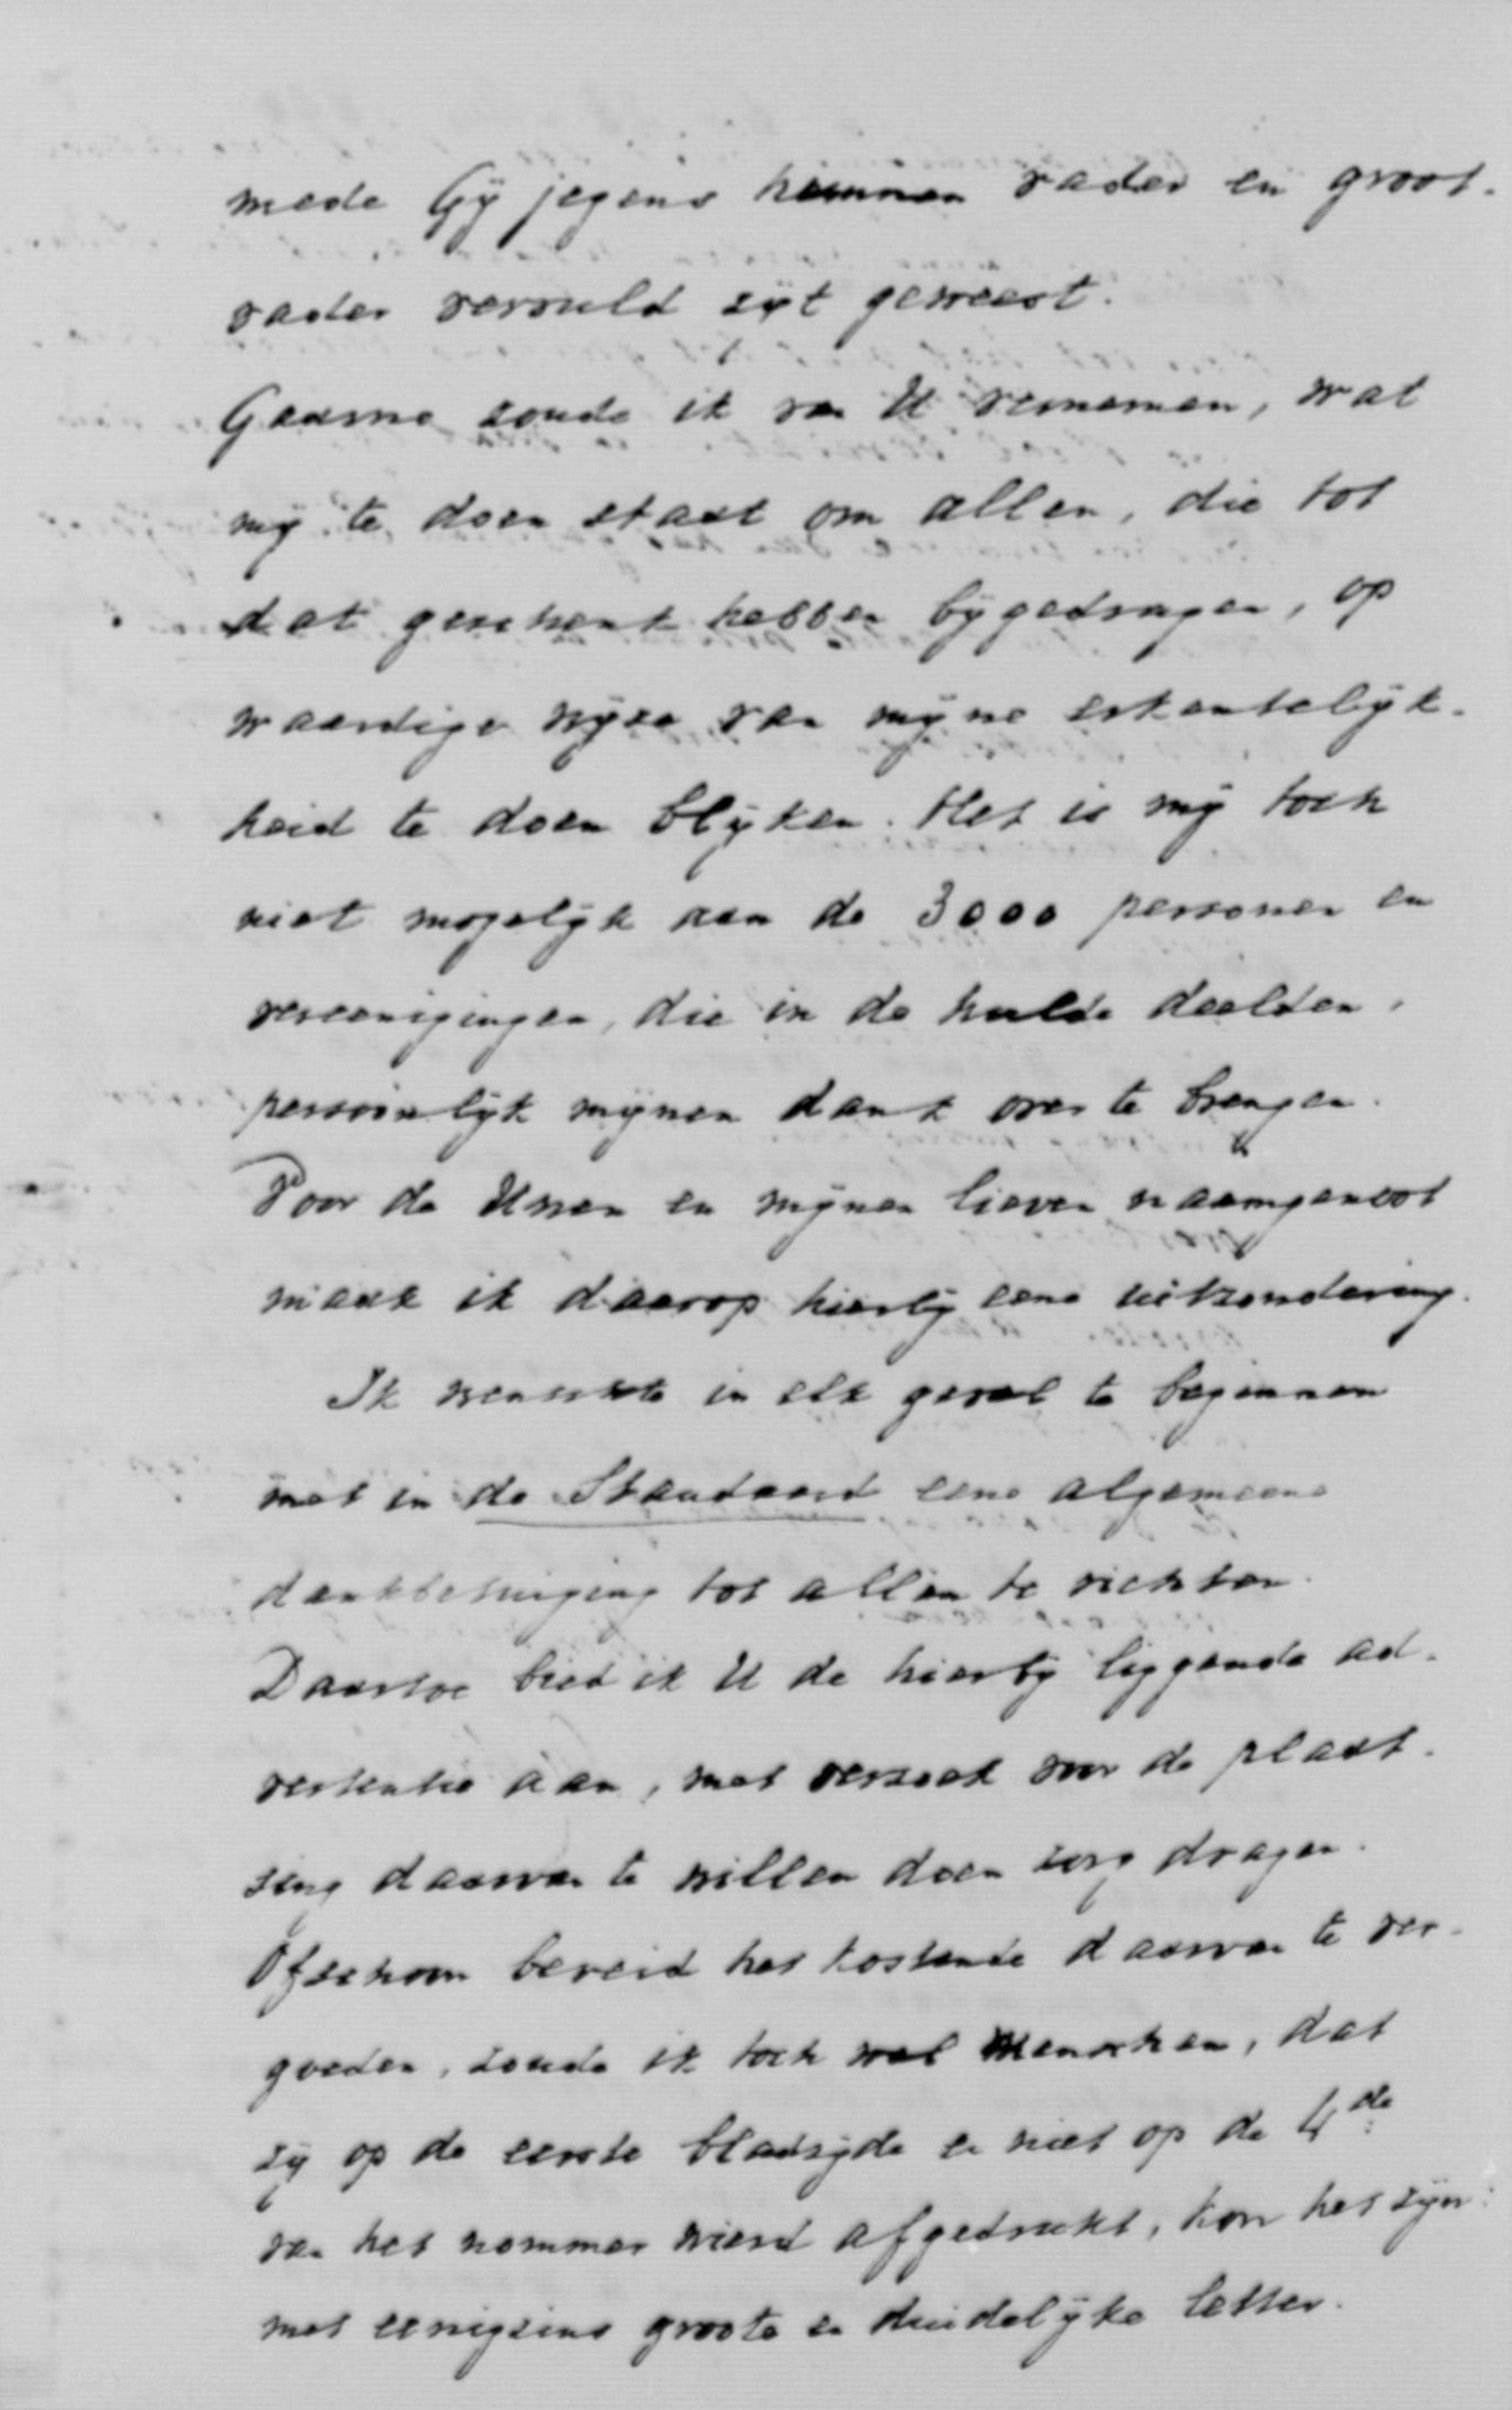 mede Gij jegens hunnen vader en groot-
vader vervuld zijt geweest.
Gaarne zoude ik van U vernemen, wat
mij te doen staat om allen, die tot
dat geschenk hebben bijgedragen, op
waardige wijze van mijne erkentelijk-
heid te doen blijken. Het is mij toch
niet mogelijk aan de 3000 personen en
vereenigingen, die in de hulde deelden,
persoonlijk mijnen dank over te brengen.
Voor de Uwen en mijnen lieven naamgenoot
maak ik daarop hierbij eene uitzondering.
Ik wenschte in elk geval te beginnen
met in de Standaard eene algemeene
dankbetuiging tot allen te richten.
Daartoe bied ik U de hierbij liggende ad-
vertentie aan, met verzoek voor de plaat-
sing daarvan te willen doen zorg dragen.
Ofschoon bereid het kostende daarvan te ver-
goeden, zoude ik toch wel wenschen, dat
zij op de eerste bladzijde en niet op de 4de
van het nommer wierd afgedrukt, kon het zijn
met eenigzins groote en duidelijke letter.